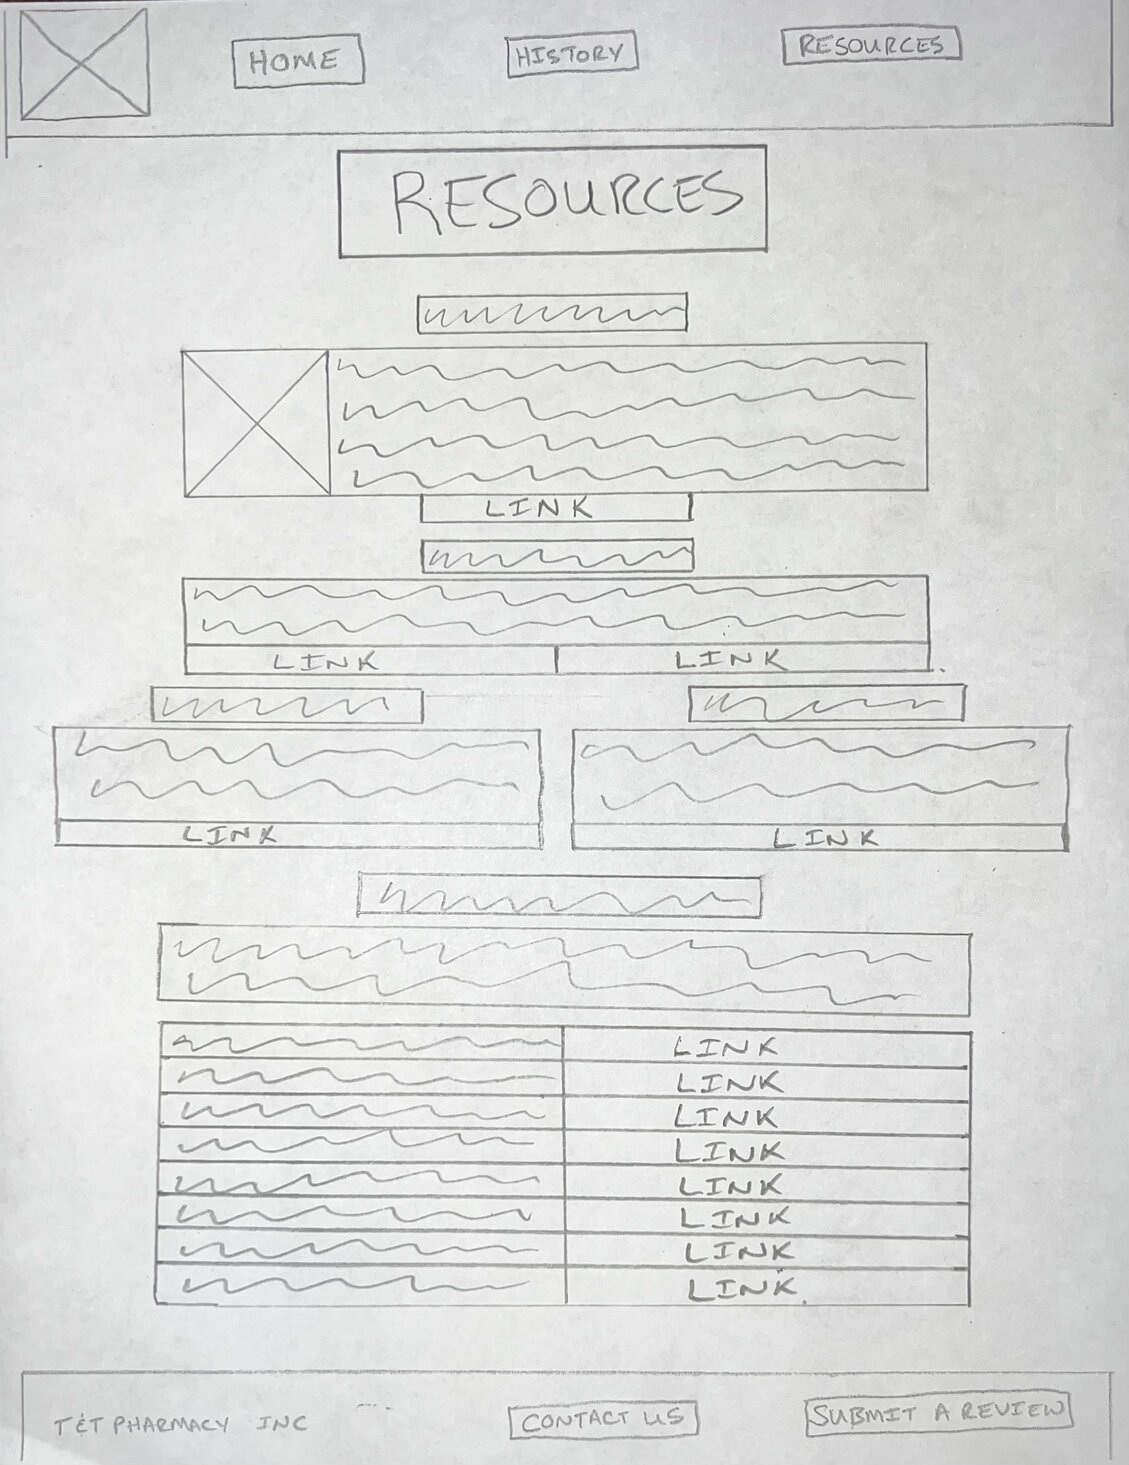 HOME HISTORY RESOURCES
RESOURCES
LINK
LINK LINK
LINK LINK
LINK
LINK
LINK
LINK
LINK
LINK
LINK
LINK
T&T PHARMACY INC CONTACT US SUBMIT A REVIEW